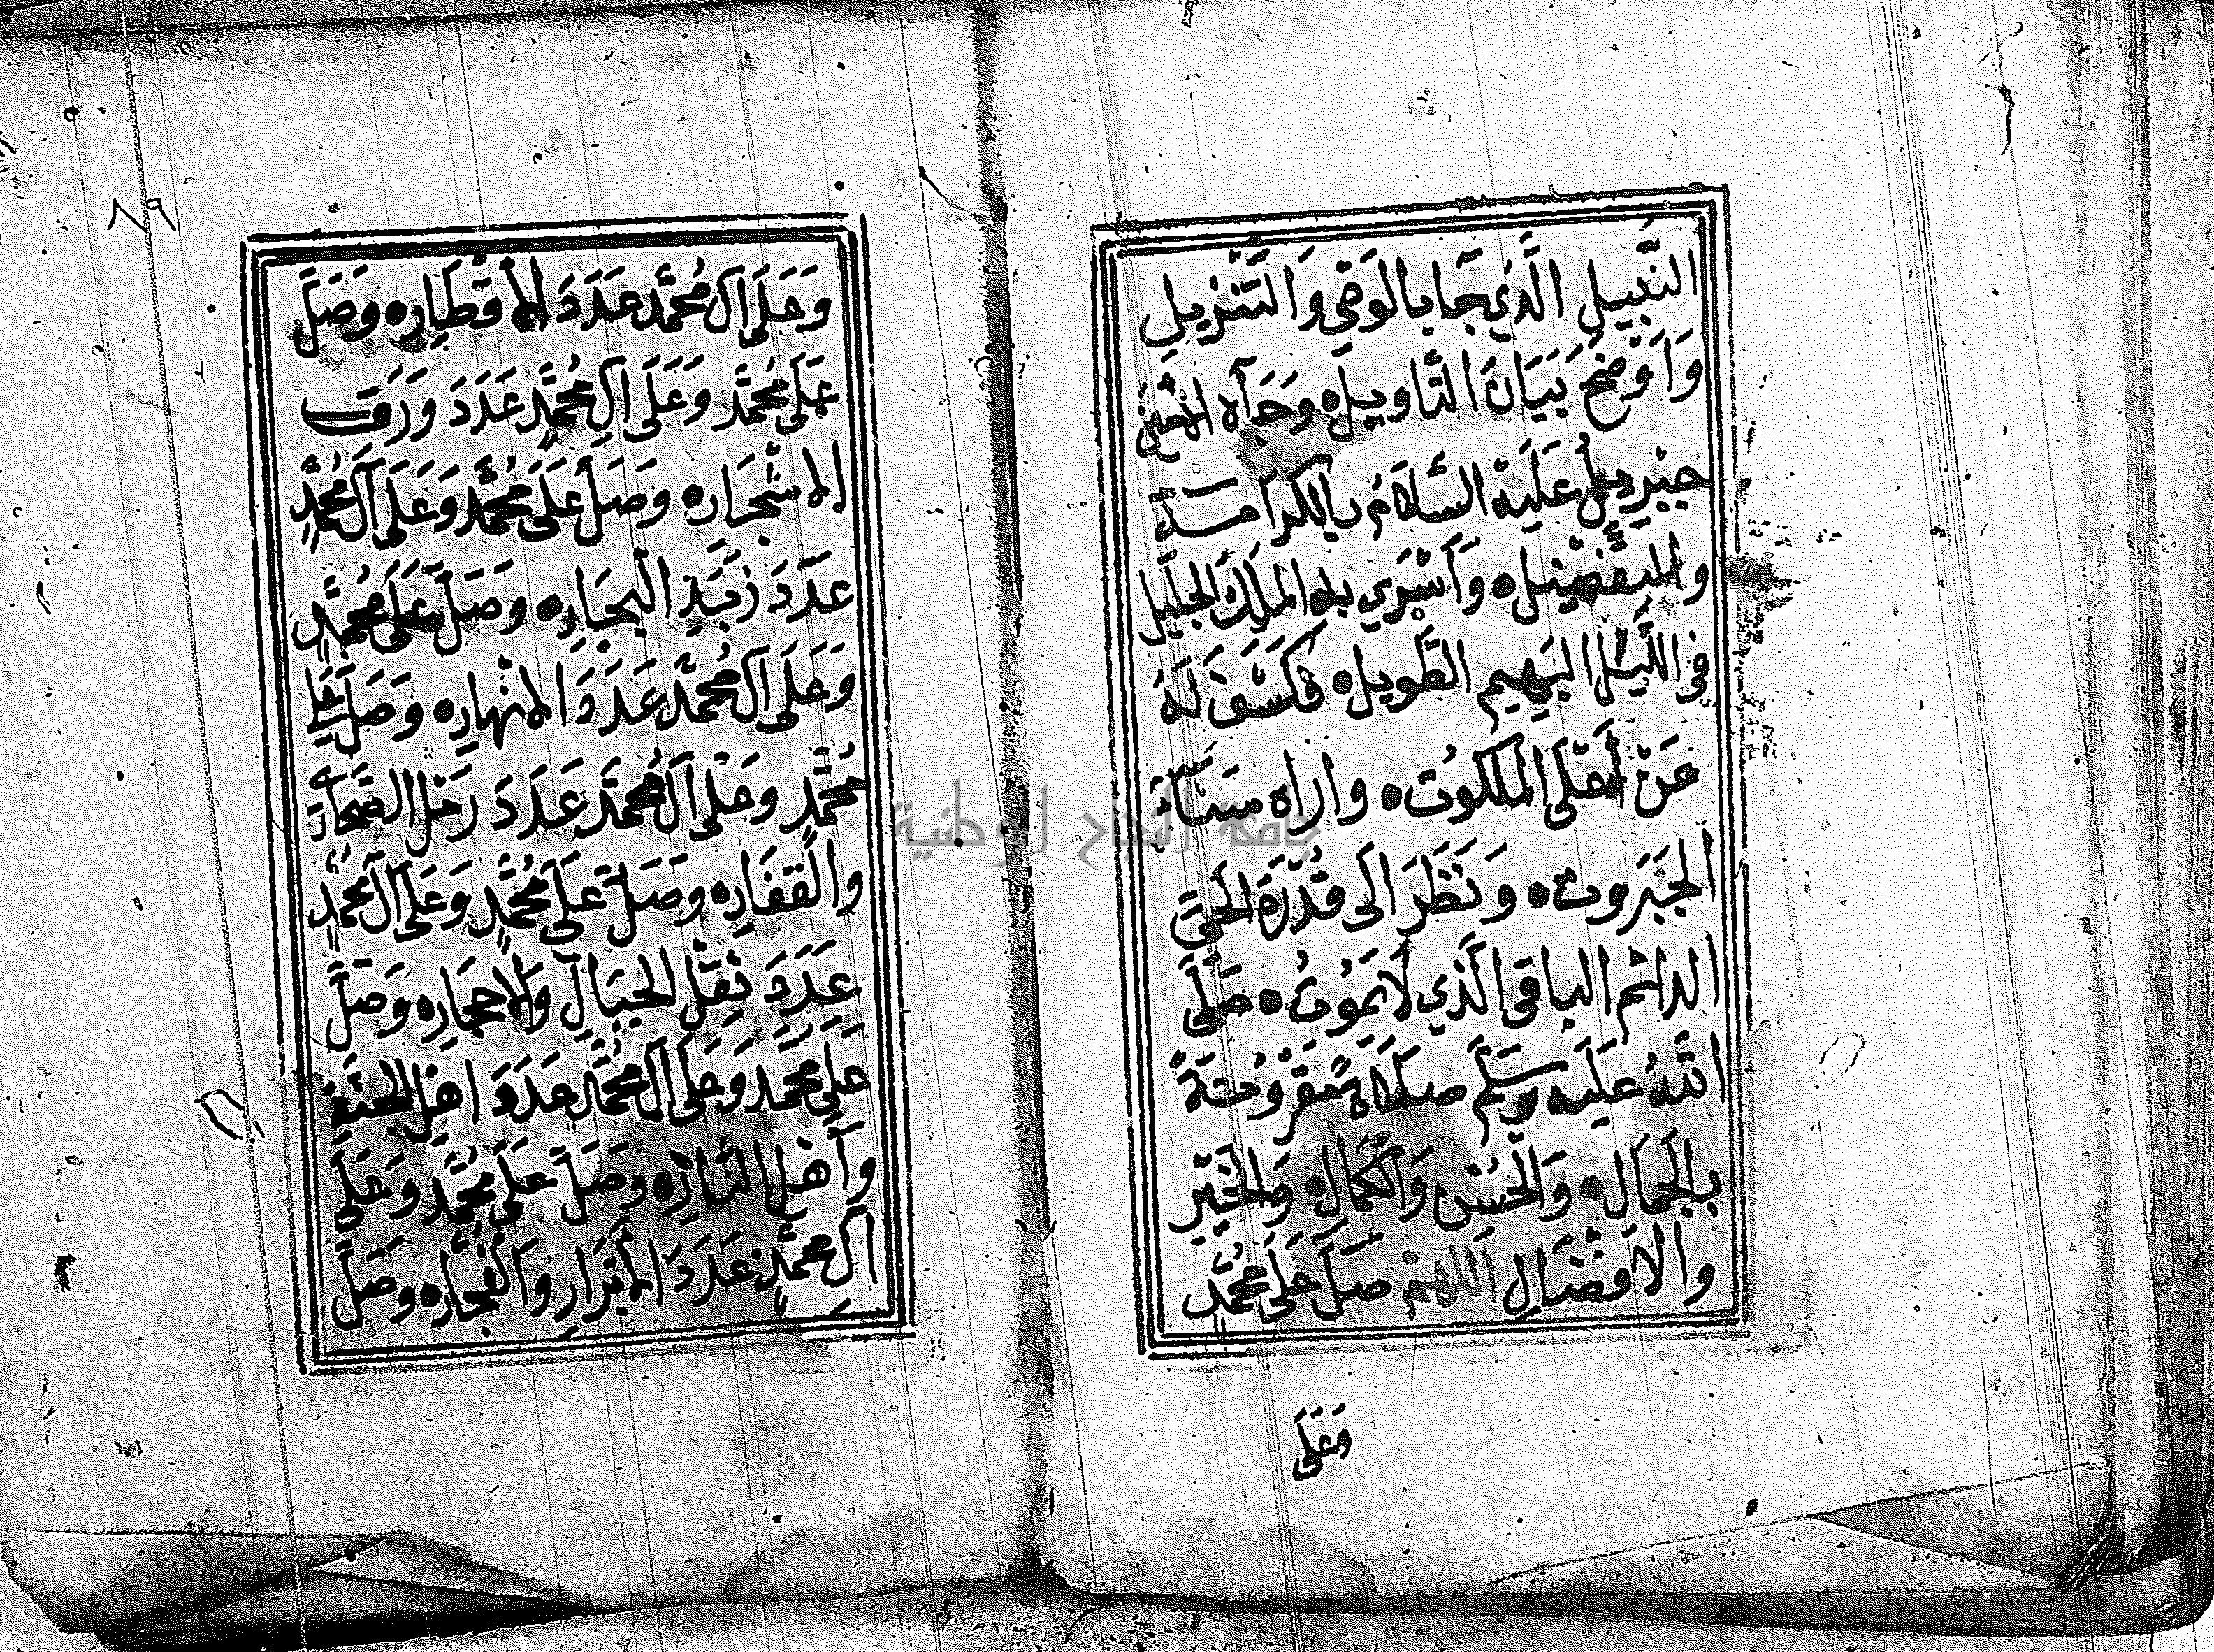 النَّبِيلِ الَّذِي جَا بِالوَحْيِ وَالتَّنْزِيلِ
وَاَوْضَحَ بَيَانَ التَّاوِيلِ وَجَآه الامِينُ
جِبْرِيلُ عَلَيْهِ السَّلَامُ بِالكَرَامَةِ
والتَّفْضِيلِ وَاَسْرَي بِهِ المَلِكُ الجَلِيل
فى اللَّيْلِ البَهِيمِ الطَّوِيلِ فَكَشَفَ لَهُ
عَنْ اَعْلَى المَلَكُوتِ واراه سَنَآءَ
الجَبَرُوتِ وَنَظَرَ الَى قُدْرَةِ الحَيِّ
الدائمِ الباقى الَّذِي لَا يَمُوتُ صَلَّى
اللَّهُ عَلَيْهِ وَسَلَّمَ صَلَاةً مَقْرُونَةً
بِالْجَمَالِ وَالْحُسْنِ وَالكَمَالِ وَالخَيْرِ
وَالاِفْضَالِ اَللَّهُمَّ صَلِّ عَلَى مُحَمَّدٍ
وَعَلَى
٨٦
وَعَلَى اَلِ مُحَمَّدٍ عَدَدَ الاَقْطَارِ وَصَلِّ
عَلَى مُحَمَّدٍ وَعَلَى اَلِ مُحَمَّدٍ عَدَدَ وَرَقِ
الاشْجَارِ وَصَلِّ عَلَى مُحَمَّدٍ وَعَلَى اَلِ مُحَمَّدٍ
عَدَدَ زَبَدِ الْبِحَارِ وَصَلِّ عَلَى مُحَمَّدٍ
وَعَلَى اَلِ مُحَمَّدٍ عَدَدَ الاَنْهَارِ وَصَلِّ عَلَى
مُحَمَّدٍ وَعَلَى اَلِ مُحَمَّدٍ عَدَدَ رَمْلِ الصَّحَارِي
وَالْقِفَارِ وَصَلِّ عَلَى مُحَمَّدٍ وَعَلَى اَلِ مُحَمَّدٍ
عَدَدَ ثِقَلِ الجِبَالِ وَالاحجَارِ وَصَلِّ
عَلَى مُحَمَّدٍ وَعَلَى اَلِ مُحَمَّدٍ عَدَدَ اهْلِ الجَنَّةِ
وَاَهْلِ النَّارِ وَصَلِّ عَلَى مُحَمَّدٍ وَعَلَى
اَلِ مُحَمَّدٍ عَدَدَ الاَبْرَارِ وَالْفُجَّارِ وَصَلِّ
جامعة النجاح الوطنية